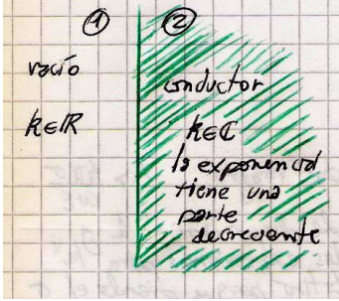 ①
②
vacío
conductor
k∈ℝ
k∈ℂ
la exponencial
tiene una
parte
decreciente